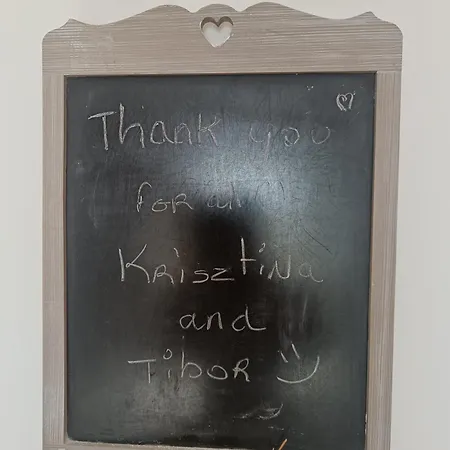 Thank you
for all
Krisztina
and
Tibor